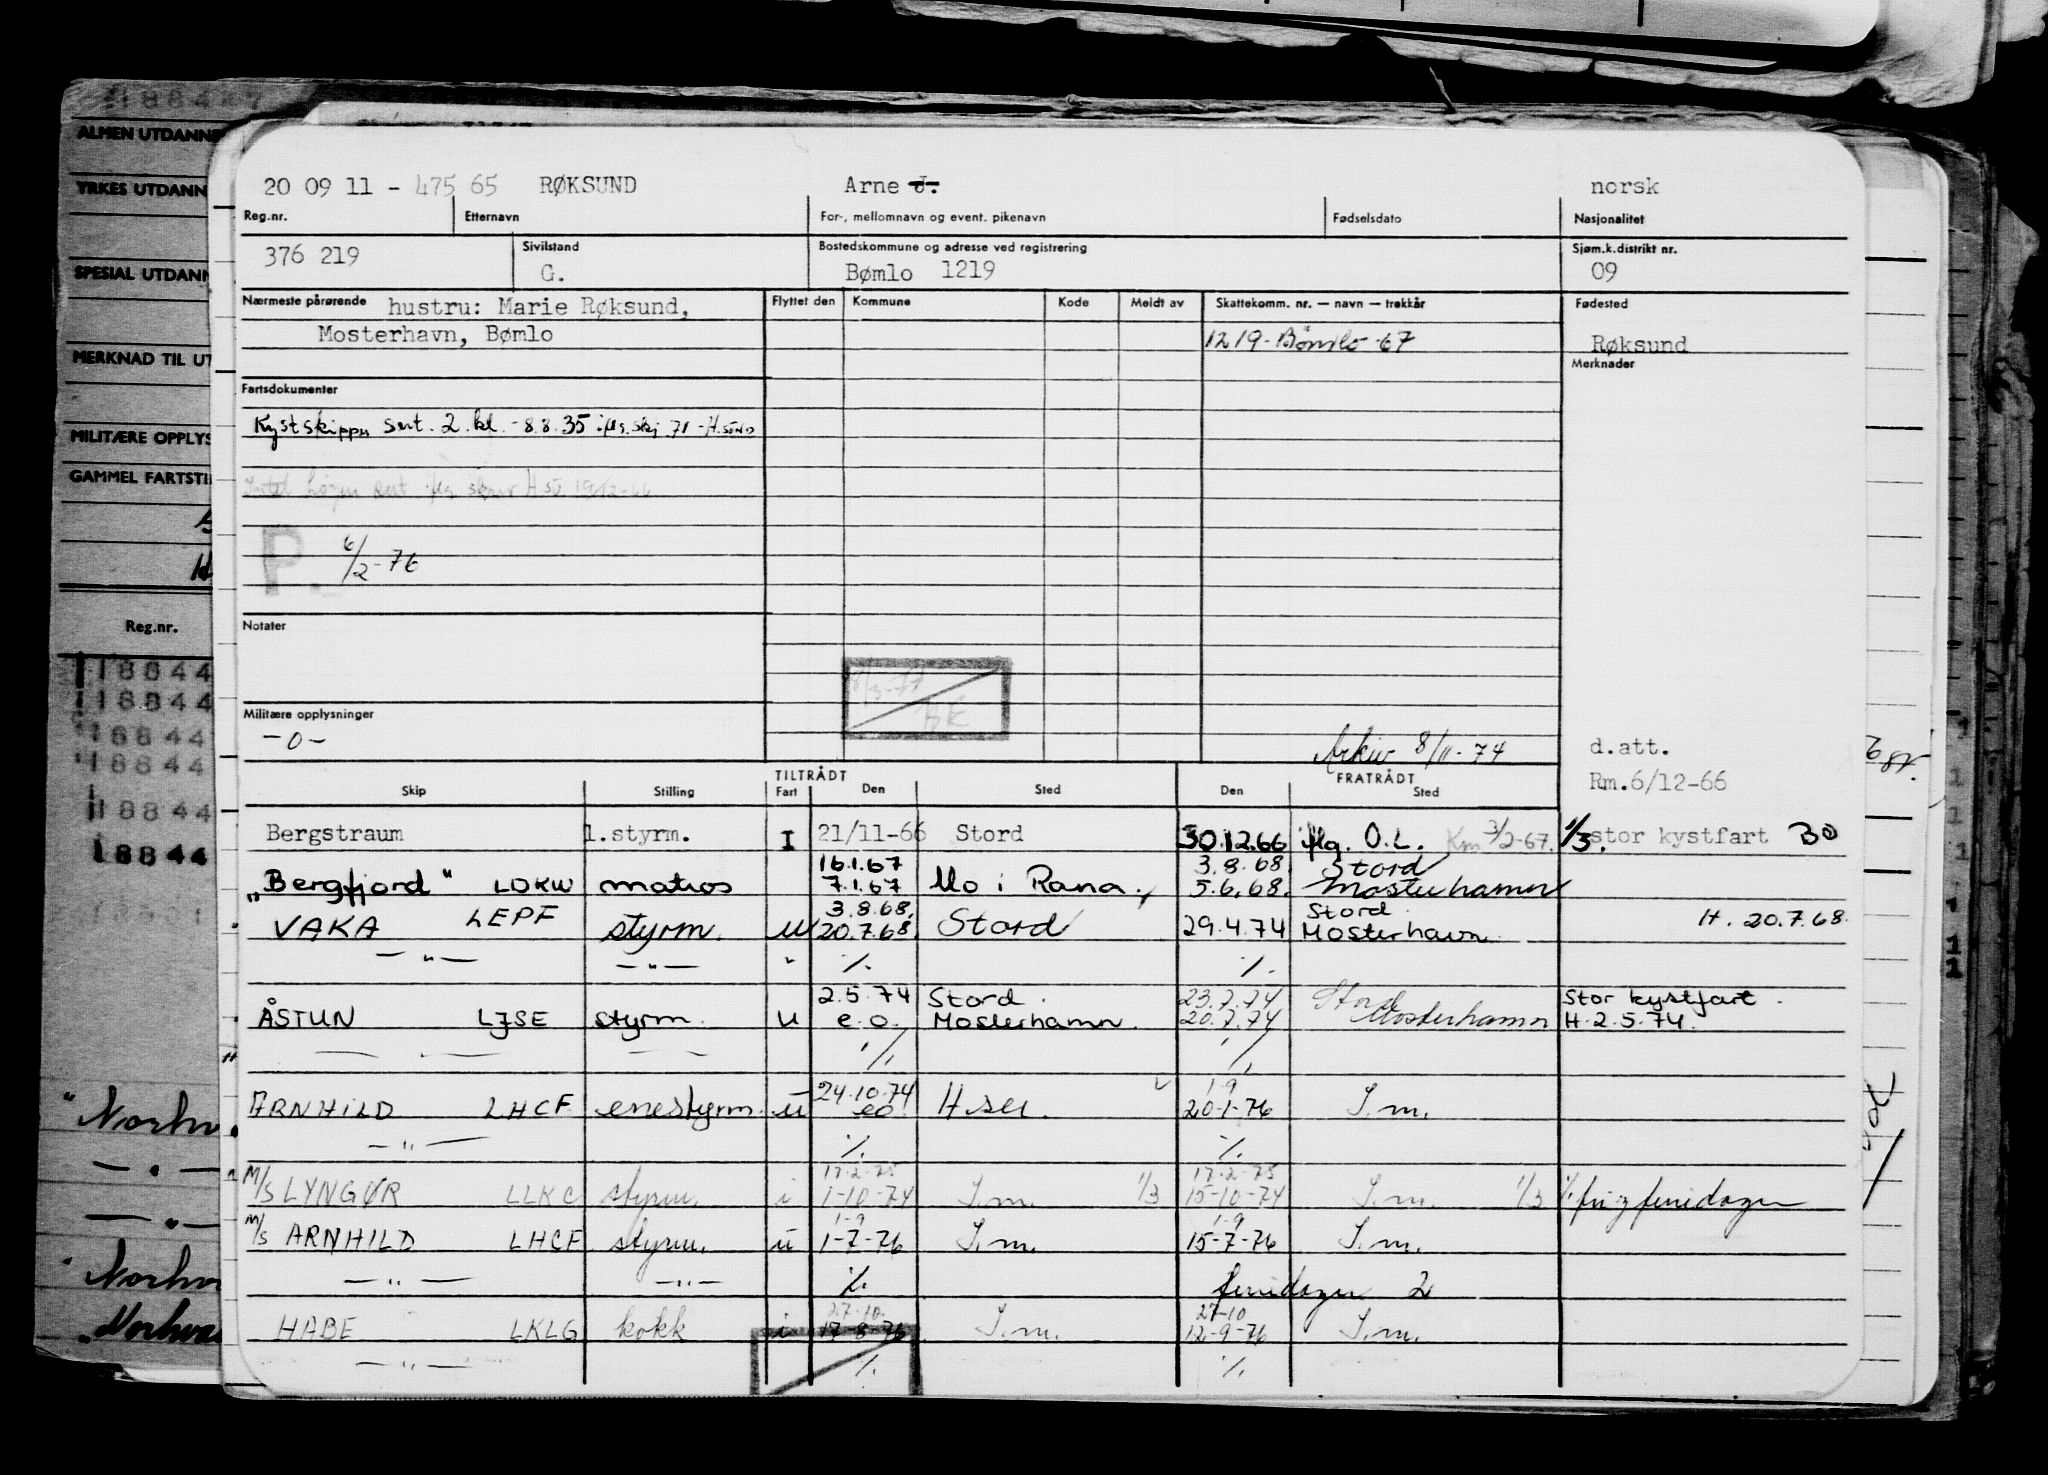 188447
ALMEN UTDANNE
YRKES UTDANN
SPESIAL UTDANN
MERKNAD TIL UT
MILITÆRE OPPLYS
GAMMEL FARTSTI
Reg.nr.
18844
18844
18844
18844
18844
18844
20 09 11 - 475 65 RØKSUND Arne J. norsk
Reg.nr. Etternavn For-, mellomnavn og event. pikenavn Fødselsdato Nasjonalitet
376 219 Sivilstand Bostedskommune og adresse ved registrering Sjøm.k.distrikt nr.
G. Bømlo 1219 09
Nærmeste pårørende hustru: Marie Røksund, Flyttet den Kommune Kode Meldt av Skattekomm. nr. — navn — trekkår Fødested
Mosterhavn, Bømlo 1219 - Bømlo - 67 Røksund
Merknader
Fartsdokumenter
Kystskipper sert. 2. kl. - 8.8.35 iflg. skj 71 - H.sund
P. 6/2-76
Notater
8/3-77
Militære opplysninger
- 0 - Arkiv 8/11-74 d.att.
TILTRÅDT FRATRÅDT Rm.6/12-66
Skip Stilling Fart Den Sted Den Sted
Bergstraum 1.styrm. I 21/11-66 Stord 30.12.66 iflg. O.L. Km 3/2-67. 1/3. stor kystfart BØ
16.1.67 3.8.68 Stord
"Bergfjord" LDKW matros 7.1.67 Mo i Rana. 5.6.68. Mosterhamn
3.8.68. Stord
VAKA LEPF styrm. u 20.7.68. Stord 29.4.74 Mosterhavn H. 20.7.68.
— " — — " — " %. %.
2.5.74 Stord. 23.7.74 Stord Stor kystfart.
ÅSTUN LJSE styrm. u e.o. Mosterhamn. 20.7.74 Mosterhamn H.2.5.74.
%. %.
24.10.74 1-9
ARNHILD LHCF enestyrm. u eo H.ser. 20-1-76 S.m.
— " — %. %.
17-2-75 17-2-75
M/S LYNGØR LLKC styrm. i 1-10-74 S.m. 1/3 15-10-74 S.m. 1/3 %. fri g feriedager
1-9 1-9
M/S ARNHILD LHCF styrm. u 1-7-76 S.m. 15-7-76 S.m.
— " — — " — %. feriedager 2
27-10. 27-10
HABE LKLG kokk i 17-8-76 S.m. 12-9-76 S.m.
— " — %. %.